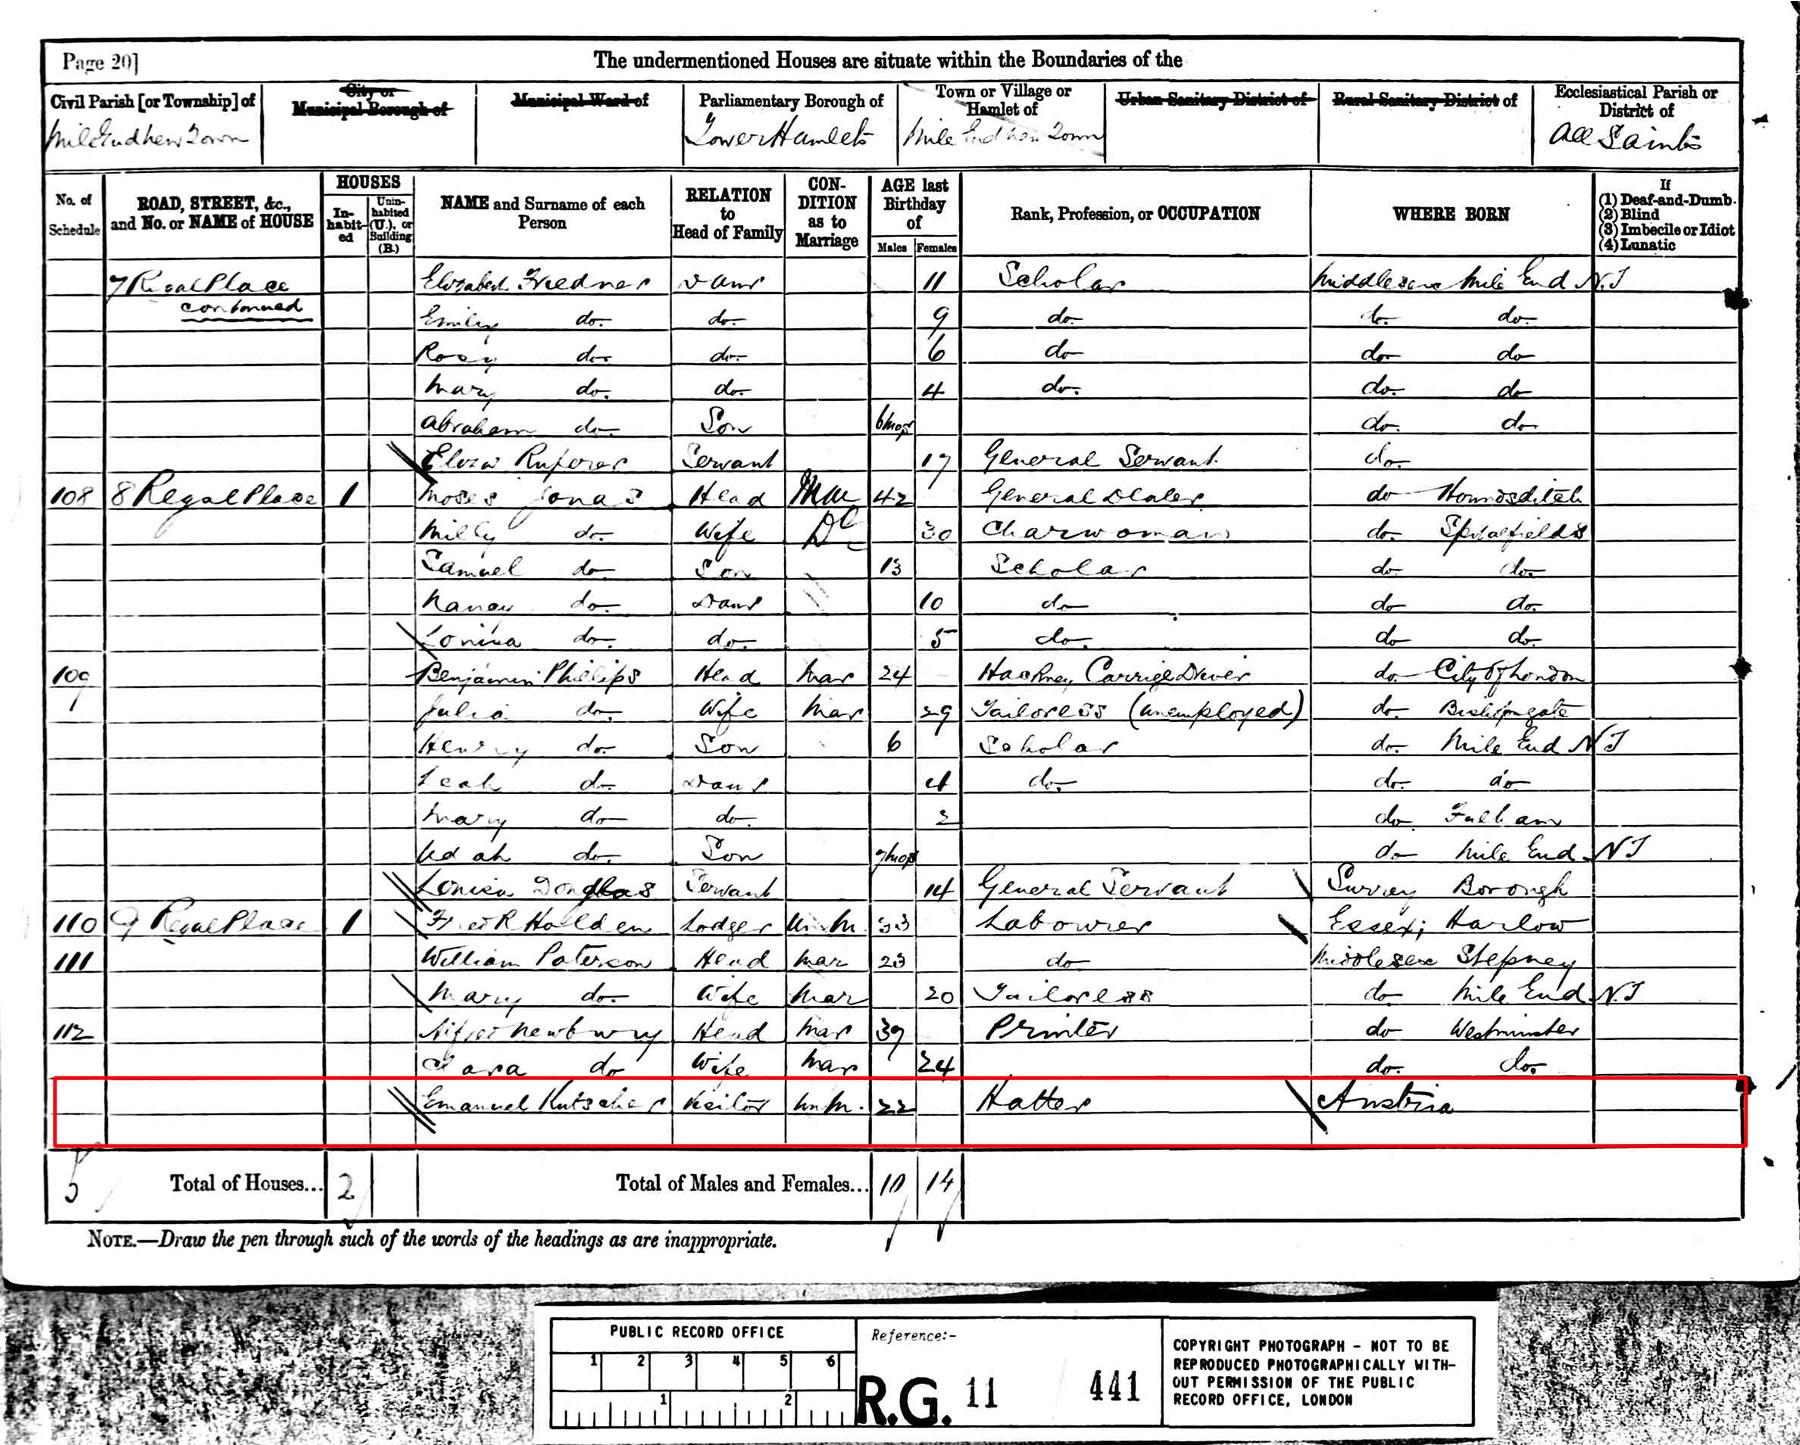 Page 20]
The undermentioned Houses are situate within the Boundaries of the
Civil Parish [or Township] of
City or Municipal Borough of
Municipal Ward of
Parliamentary Borough of
Town or Village or Hamlet of
Urban Sanitary District of
Rural Sanitary District of
Ecclesiastical Parish or District of
Mile End New Town
Tower Hamlets
Mile End New Town
All Saints
No. of Schedule
ROAD, STREET, &c., and No. or NAME of HOUSE
HOUSES
In-habit-ed
Unin-habited (U.), or Building (B.)
NAME and Surname of each Person
RELATION to Head of Family
CON-DITION as to Marriage
AGE last Birthday of
Males
Females
Rank, Profession, or OCCUPATION
WHERE BORN
If
(1) Deaf-and-Dumb
(2) Blind
(3) Imbecile or Idiot
(4) Lunatic
7 Regal Place Elizabeth Daur 11 Scholar Middlesex Mile End N.T
continued
Emily do. do. 9 do. do. do.
Rosy do. do. 6 do do do
Mary do. do. 4 do. do. do
Abraham do. Son 6 mos do. do.
Eliza Servant 17 General Servant do.
108 8 Regal Place 1 Moses Jonas Head Mar 42 General Dealer do Houndsditch
Milly do. Wife Do 30 Charwoman do. Spitalfields
Samuel do. Son 13 Scholar do. do.
Nancy do. Daur 10 do do do.
Louisa do. do. 5 do. do do.
109 Benjamin Phillips Head Mar 24 Hackney Carrige Driver do City of London
Julia do. Wife Mar 29 Tailoress (unemployed) do. Bishopsgate
Henry do. Son 6 Scholar do. Mile End N T
Leah do. Daur 4 do. do. do
Mary do do. 2 do. Fulham
do. Son 7 mos do Mile End N T
Louisa Douglas Servant 14 General Servant Surrey Borough
110 9 Regal Place 1 Fred R Hollden Lodger Un.M. 33 Labourer Essex; Harlow
111 William Paterson Head Mar 23 do Middlesex Stepney
Mary do. Wife Mar 20 Tailoress do Mile End N.T
112 Alfred Newbury Head Mar 39 Printer do Westminster
Clara do Wife Mar 24 do. do.
Emanuel Kutscher Visitor Un.M. 22 Hatter Austria
5 Total of Houses... 2 Total of Males and Females... 10 14
NOTE.—Draw the pen through such of the words of the headings as are inappropriate.
PUBLIC RECORD OFFICE
1 2 3 4 5 6
1 2
Reference:-
R.G. 11 441
COPYRIGHT PHOTOGRAPH - NOT TO BE
REPRODUCED PHOTOGRAPHICALLY WITH-
OUT PERMISSION OF THE PUBLIC
RECORD OFFICE, LONDON